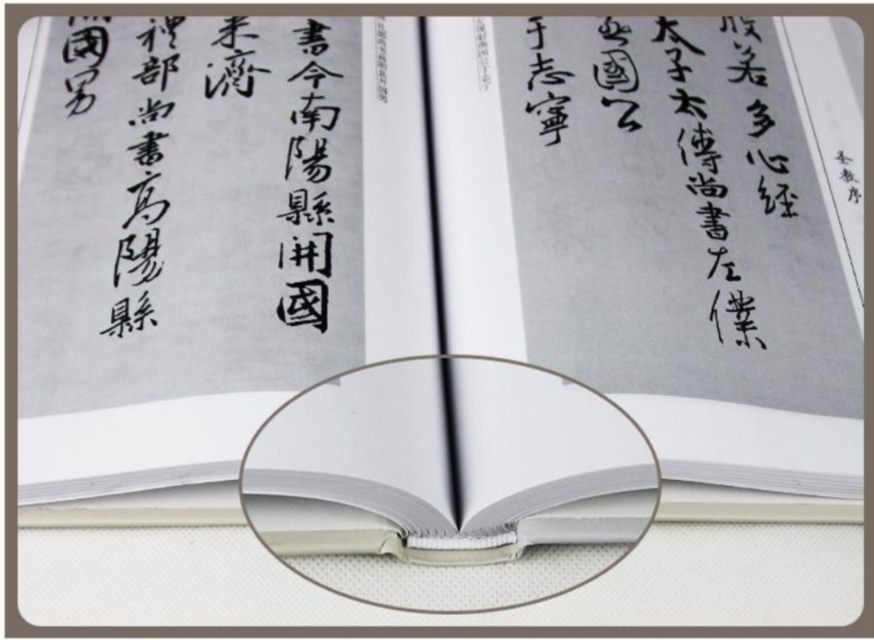 圣教序
般若多心經
太子太傅尚書左僕
燕國公
于志寧
書令南陽縣開國
來濟
禮部尚書高陽縣
開國男